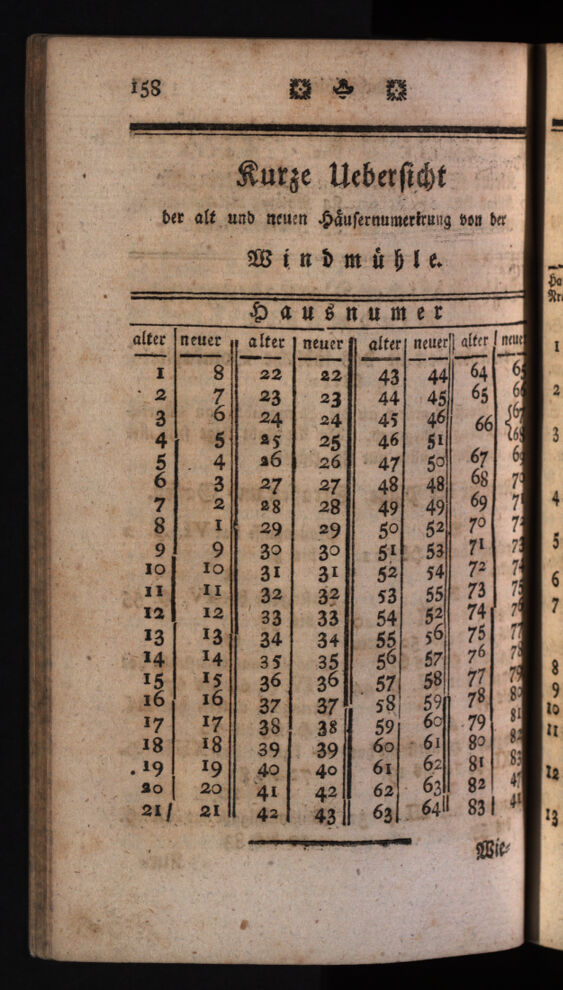 158
Kurze Uebersicht
der alt und neuen Häusernumerirung von der
Windmühle.
Hausnumer
alter neuer alter neuer alter neuer alter neue
1 8 22 22 43 44 64 65
2 7 23 23 44 45 65 66
3 6 24 24 45 46 66 {67
{68
4 5 25 25 46 51
5 4 26 26 47 50 67 69
6 3 27 27 48 48 68 70
7 2 28 28 49 49 69 71
8 1 29 29 50 52 70 72
9 9 30 30 51 53 71 73
10 10 31 31 52 54 72 74
11 11 32 32 53 55 73 75
12 12 33 33 54 52 74 76
13 13 34 34 55 56 75 77
14 14 35 35 56 57 76 78
15 15 36 36 57 58 77 79
16 16 37 37 58 59 78 80
17 17 38 38 59 60 79 81
18 18 39 39 60 61 80 82
19 19 40 40 61 62 81 83
20 20 41 42 62 63 82 47
21 21 42 43 63 64 83 41
Wie-
1
2
3
4
5
6
7
8
9
10
11
12
13